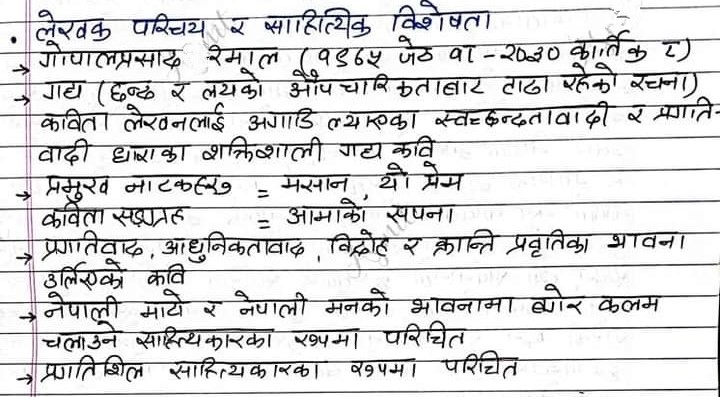 • लेखक परिचय र साहित्यिक विशेषता
→ गोपालप्रसाद रिमाल (१९७५ जेठ १८ - २०३० कार्तिक ८)
→ गद्य (छन्द र लयको औपचारिकताबाट टाढा रहेको रचना)
कविता लेखनलाई अगाडि ल्याएका स्वच्छन्दतावादी र प्रगति-
वादी धाराका शक्तिशाली गद्य कवि
→ प्रमुख नाटकहरु = मसान, यो प्रेम
कविता सङ्ग्रह = आमाको सपना
→ प्रगतिवाद, आधुनिकतावाद, विद्रोह र क्रान्ति प्रवृतिका भावना
उर्लिएको कवि
→ नेपाली माटो र नेपाली मनको भावनामा कलम
चलाउने साहित्यकारका रुपमा परिचित
→ प्रगतिशिल साहित्यकारका रुपमा परिचित